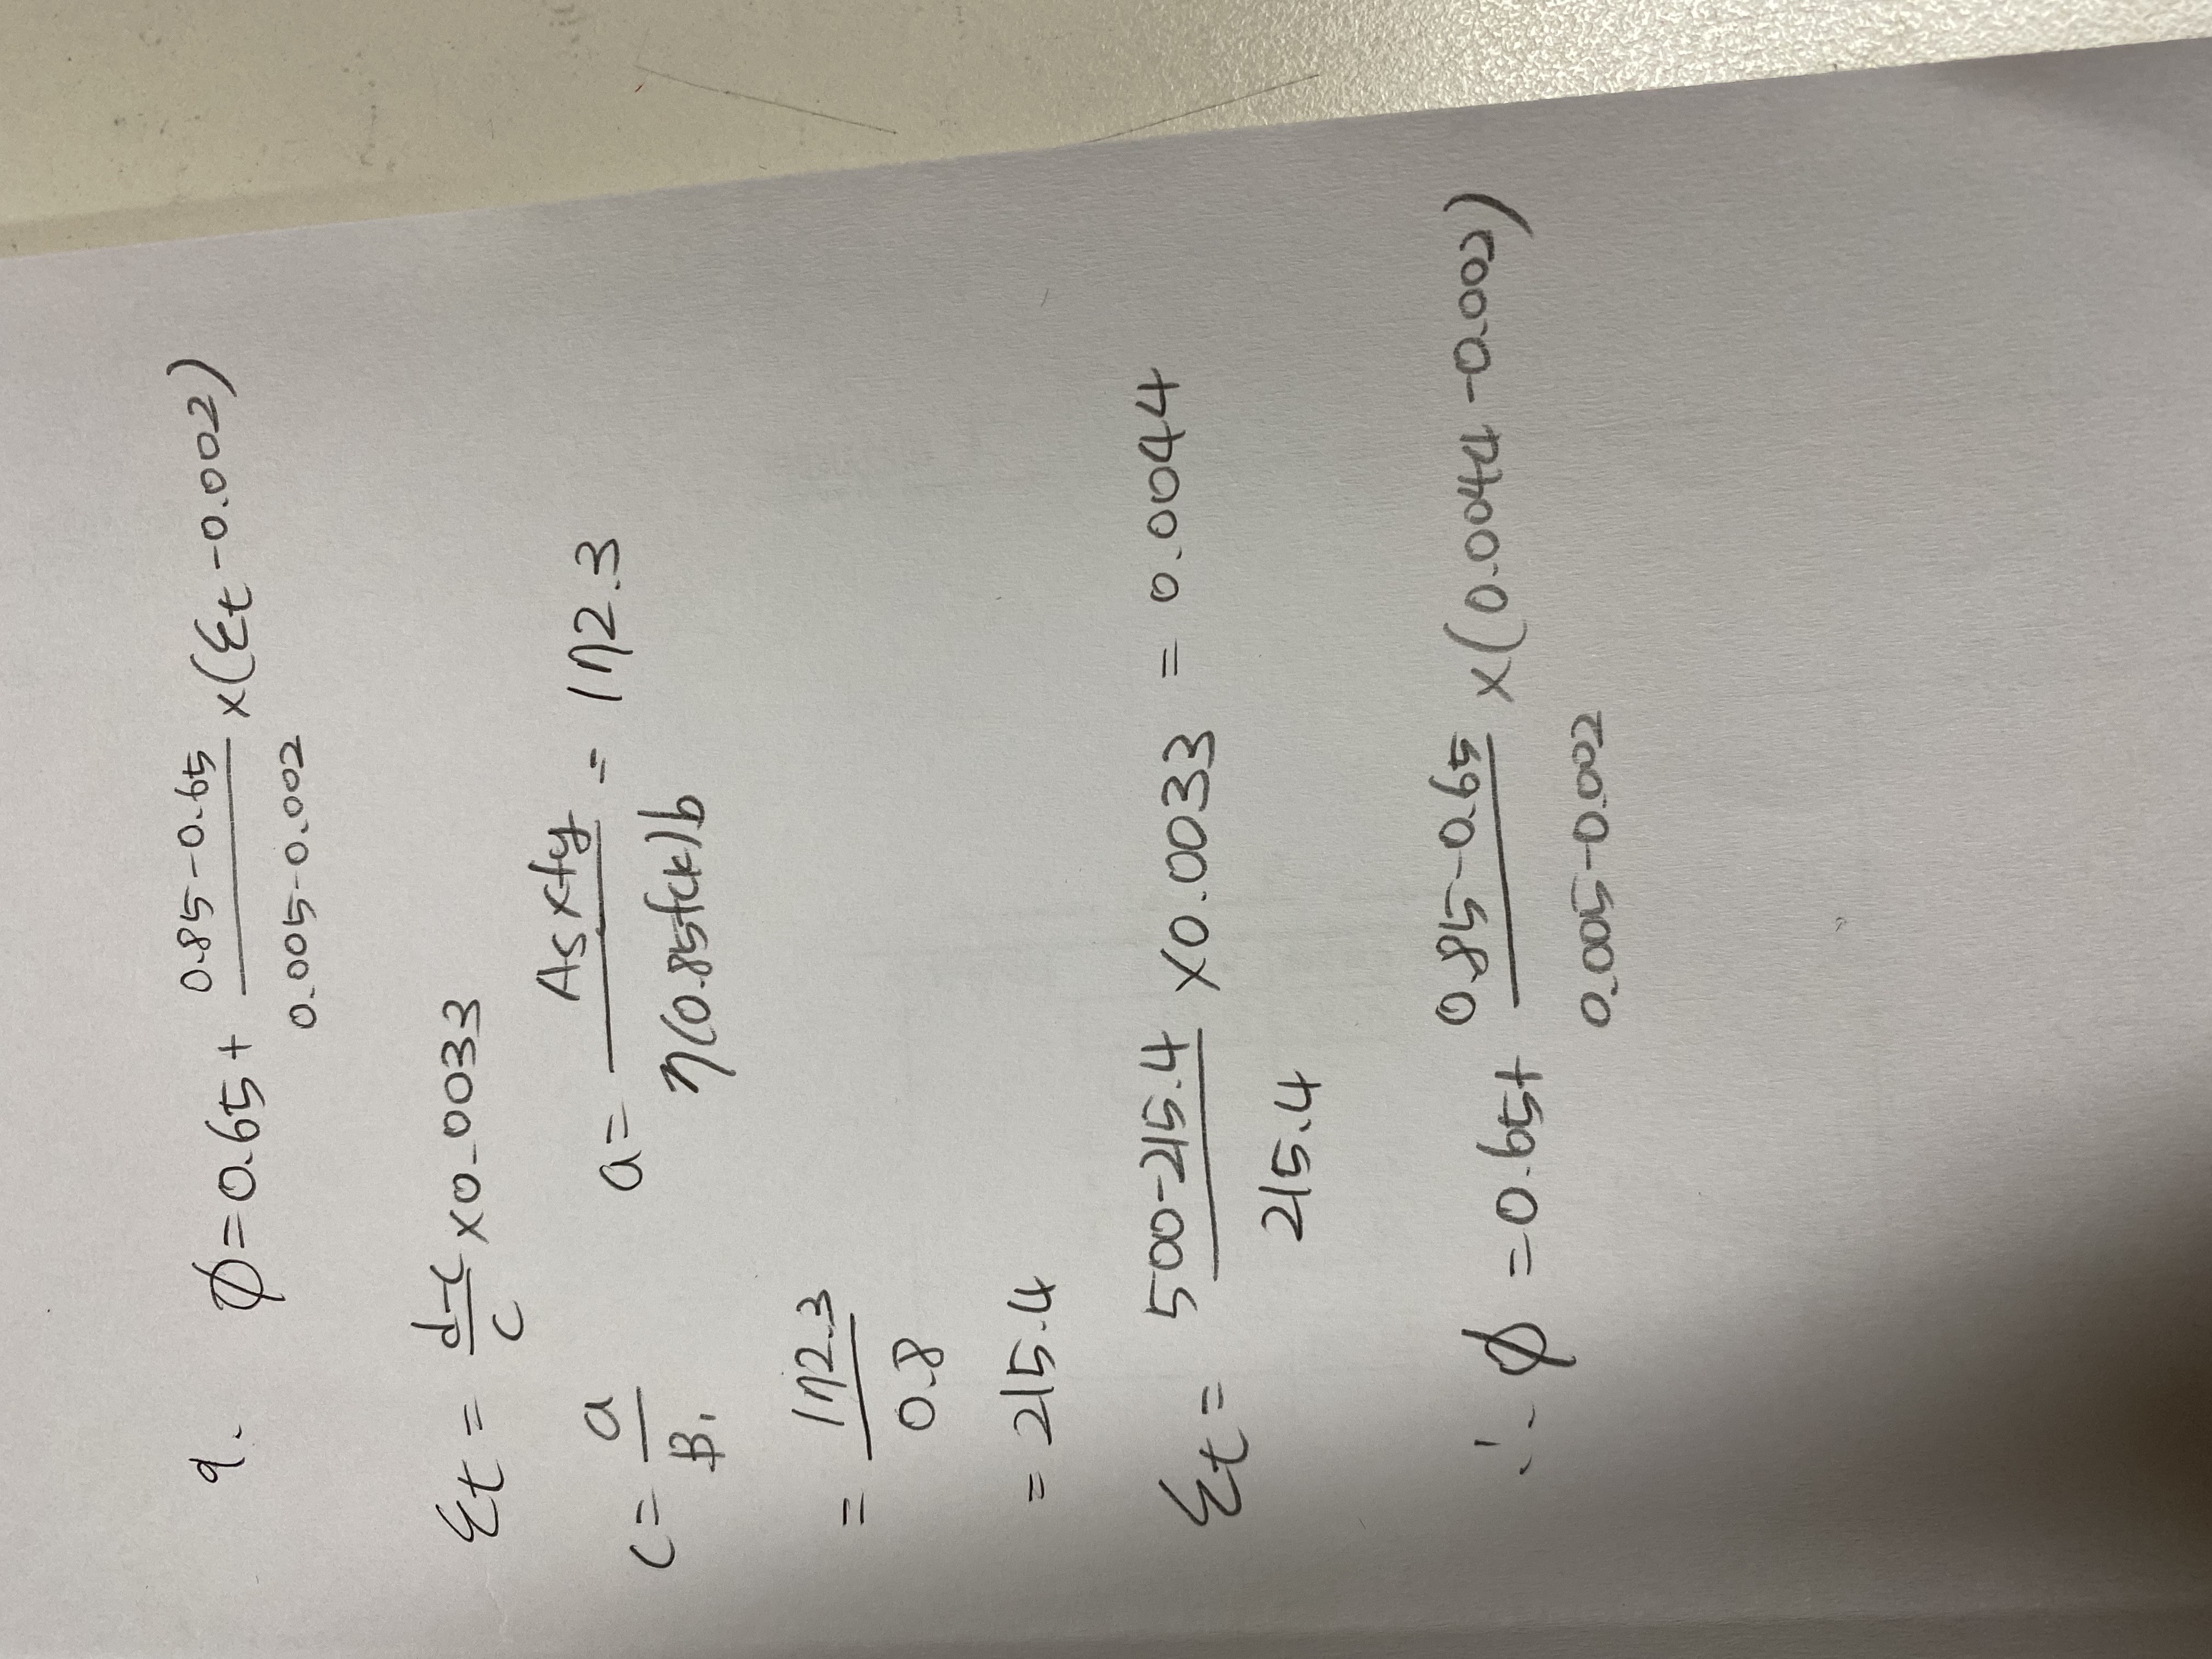 9. φ = 0.65 + (0.85-0.65)/(0.005-0.002) × (εt - 0.002)
εt = (d-c)/c × 0.0033
c = a/β1    a = (As × fy)/(η(0.85fck)b) = 172.3
= 172.3/0.8
= 215.4
εt = (500-215.4)/215.4 × 0.0033 = 0.0044
∴ φ = 0.65 + (0.85-0.65)/(0.005-0.002) × (0.0044-0.002)